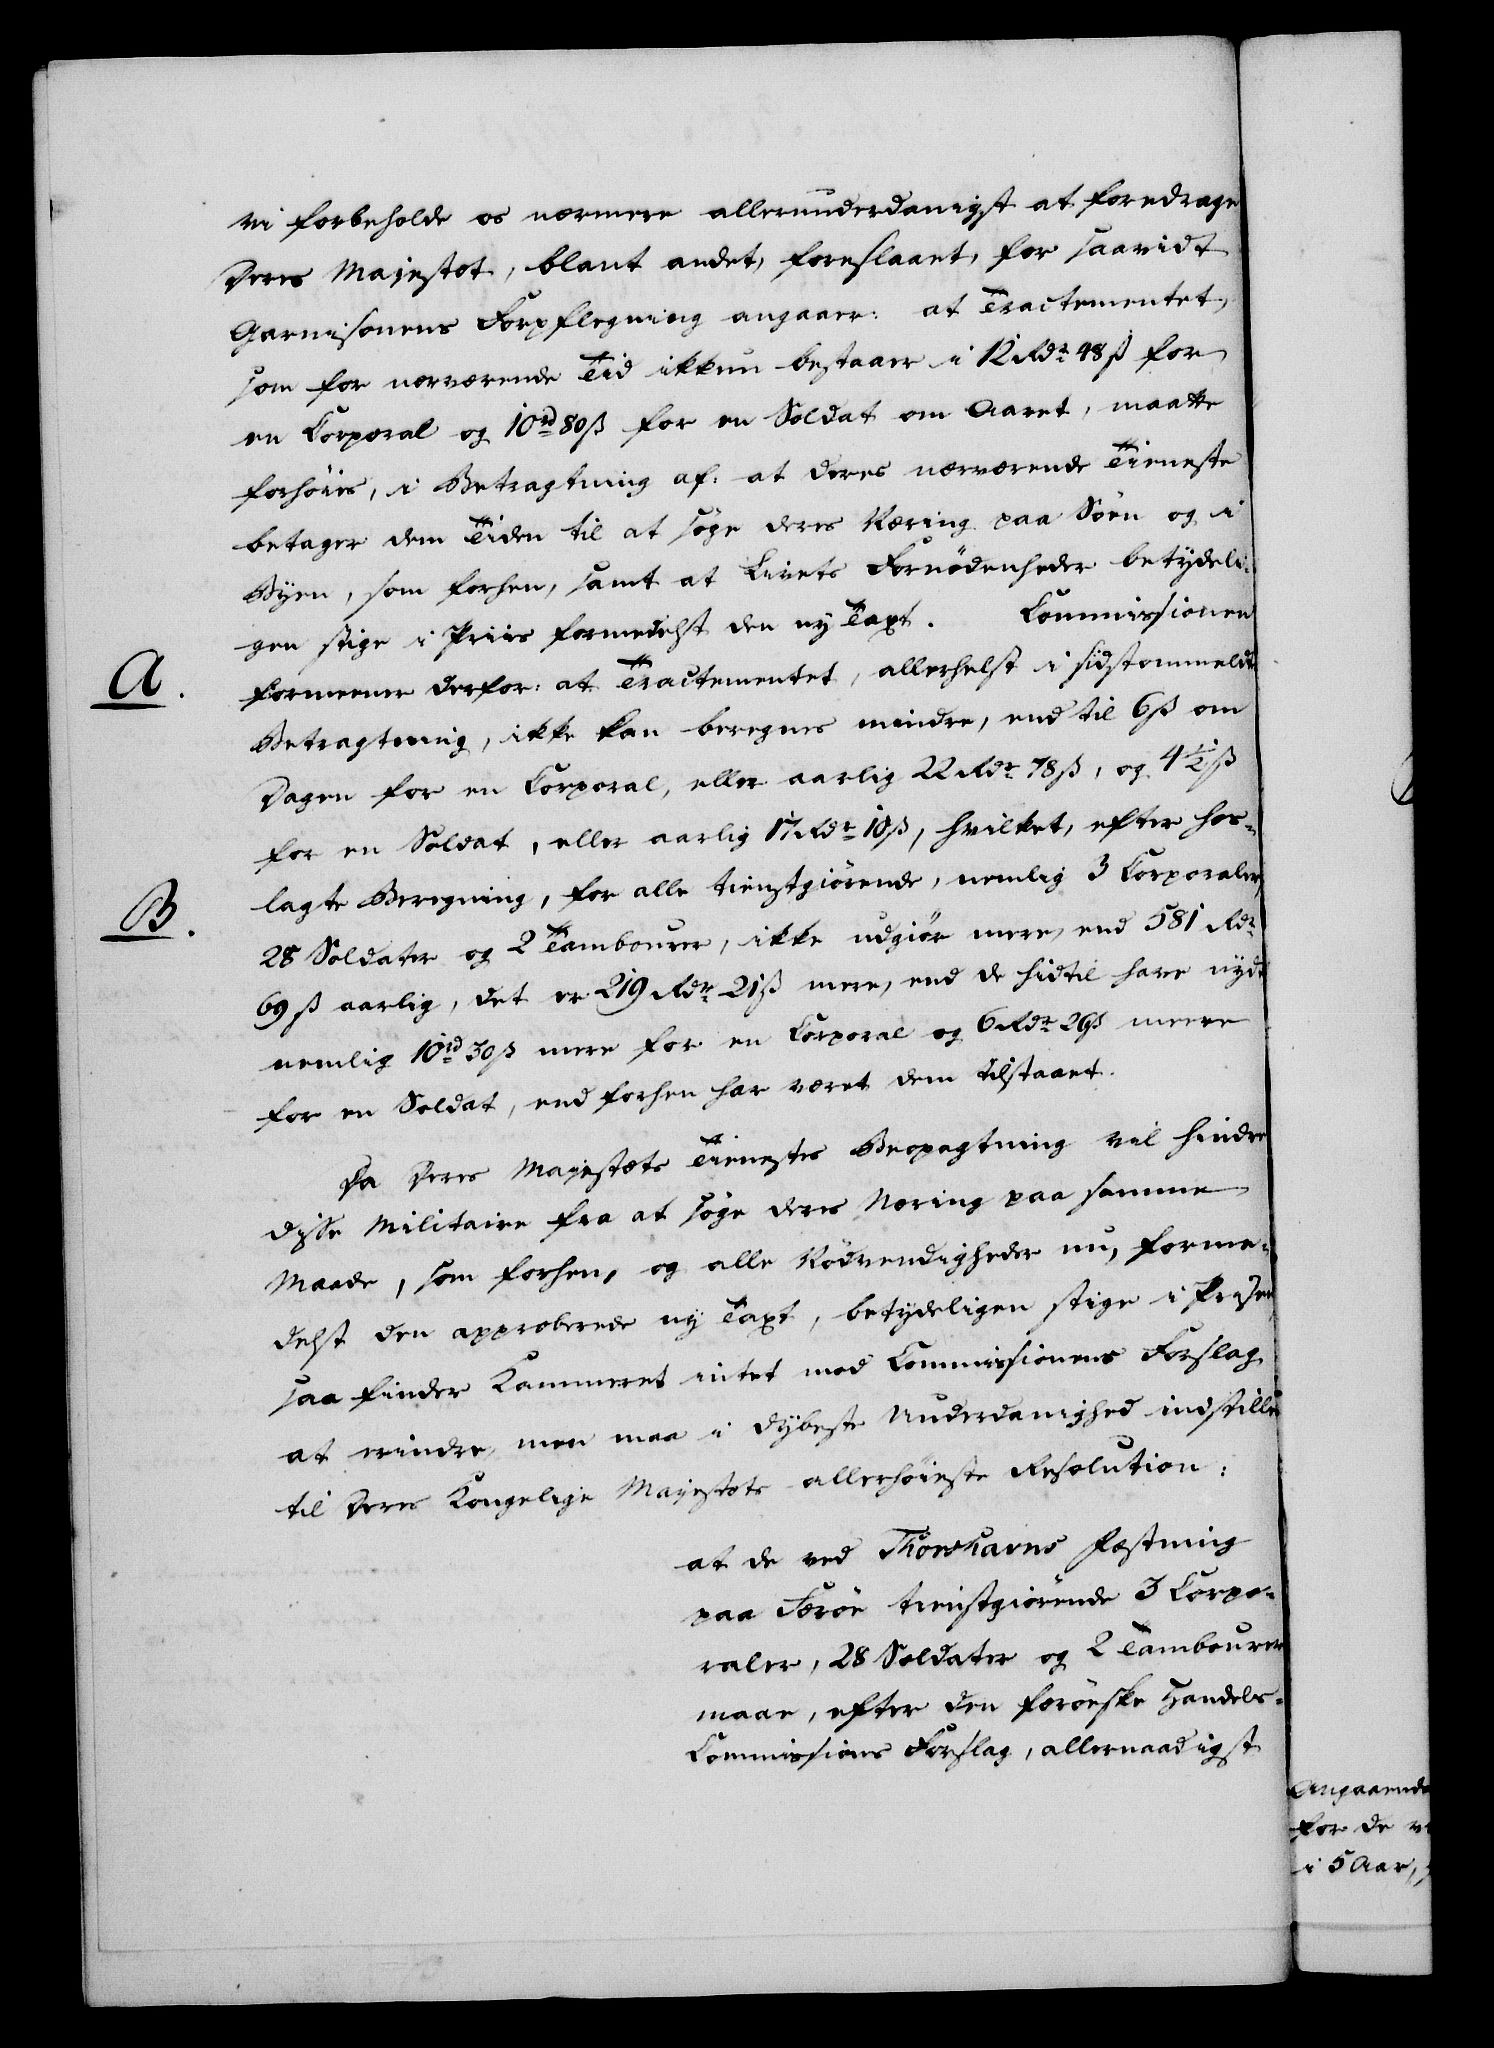 vi forbeholde os nærmere allerunderdanigst at foredrage
Deres Majestæt, blant andet, foreslaaet, for saavidt
Garnisonens Forpflegning angaaer: at Tractementet,
som for nærværende Tid ikkun bestaaer i 12 Rdr 48 ß for
en Corporal og 10 rd 80 ß for en Soldat om Aaret, maatte
forhöies, i Betragtning af: at deres nærværende Tieneste
betager dem Tiden til at söge deres Næring paa Söen og i
Byen, som forhen, samt at Livets Fornödenheder betydeli-
gen stige i Priis formedelst den ny Taxt. Commissionen
A.
formeener derfor: at Tractementet, allerhelst i sidstommeldte
Betragtning, ikke kan beregnes mindre, end til 6 ß om
Dagen for en Corporal, eller aarlig 22 Rdr 78 ß, og 4 1/2 ß
for en Soldat, eller aarlig 17 Rdr 10 ß, hvilket, efter hos-
B.
lagte Beregning, for alle tienstgiörende, nemlig 3 Corporaler,
28 Soldater og 2 Tambourer, ikke udgiör mere, end 581 Rdr
69 ß aarlig, det er 219 Rdr 21 ß mere, end de hidtil have nydt
nemlig 10 rd 30 ß mere for en Corporal og 6 Rdr 26 ß meere
for en Soldat, end forhen har været dem tilstaaet.
Da Deres Majestæts Tienestes Beopagtning vil hindre
disse Militaire fra at söge deres Næring paa samme
Maade, som forhen, og alle Nödvendigheder nu, forme-
delst den approberede ny Taxt, betydeligen stige i Prisen
saa finder Kammeret intet mod Commissionens Forslag
at erindre, men maa i dybeste Underdanighed indstille
til Deres Kongelige Majestæts allerhöieste Resolution:
at de ved Thorshavns Fæstning
paa Færöe tienstgiörende 3 Corpo-
raler, 28 Soldater og 2 Tambourer
maae, efter den færöeske Handels-
Commissions Forslag, allernaadigst
Angaaende
for de
i 5 Aar,